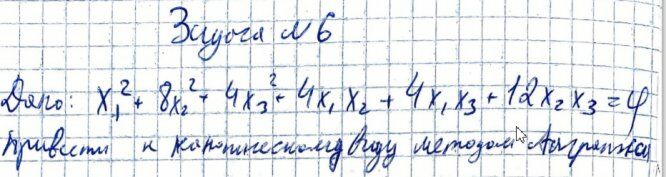 Задача №6
Дано: x₁² + 8x₂² + 4x₃² + 4x₁x₂ + 4x₁x₃ + 12x₂x₃ = φ
привести к каноническому виду методом Лагранжа